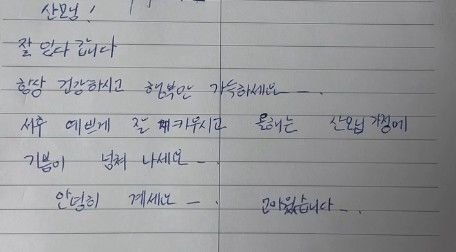 산모님!
잘 있다 갑니다
항상 건강하시고 행복만 가득하세요~.
서후 예쁘게 잘 키우시고 올해는 산모님 가정에
기쁨이 넘쳐 나세요~.
안녕히 계세요~. 고마웠습니다~.